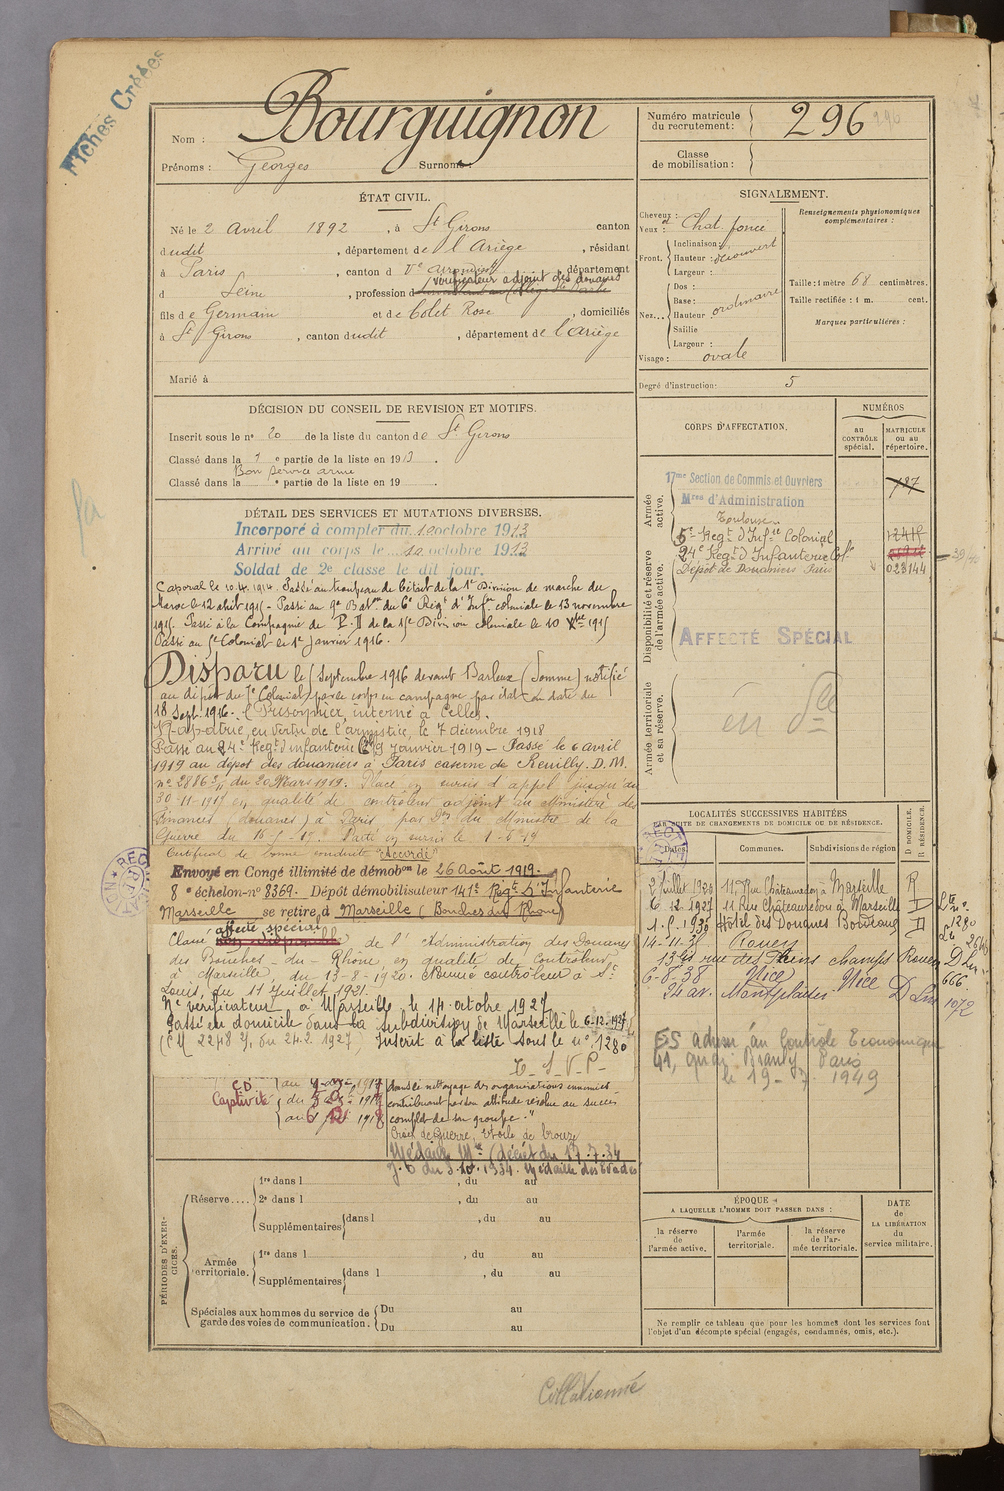 Fiches Créées
Nom : Bourguignon
Prénoms : Georges Surnoms :
Numéro matricule du recrutement : 296
Classe de mobilisation :
ÉTAT CIVIL.
Né le 2 Avril 1892, à St Girons canton
dudit, département de l'Ariège, résidant
à Paris, canton d Ve arrondist, département
vérificateur adjoint des douanes
d Seine, profession d
fils de Germain et de Colet Rose, domiciliés
à St Girons, canton dudit, département de l'Ariège
Marié à
SIGNALEMENT.
Cheveux : Chat. foncé
Yeux : d
Front. Inclinaison :
Hauteur : découvert
Largeur :
Nez... Dos :
Base :
Hauteur ordinaire
Saillie
Largeur :
Visage : ovale
Renseignements physionomiques complémentaires :
Taille : 1 mètre 68 centimètres.
Taille rectifiée : 1 m. cent.
Marques particulières :
Degré d'instruction : 5
DÉCISION DU CONSEIL DE REVISION ET MOTIFS.
Inscrit sous le n° 20 de la liste du canton de St Girons
Classé dans la 1 e partie de la liste en 1913.
Bon service armé
Classé dans la e partie de la liste en 19 .
DÉTAIL DES SERVICES ET MUTATIONS DIVERSES.
Incorporé à compter du 10 octobre 1913
Arrivé au corps le 10 octobre 1913
Soldat de 2e classe le dit jour.
Caporal le 10.4.1914. Passé au troupeau de bétail de la 1re Division de marche du
Maroc le 12 abril 1915 - Passé au 9e Baton du 6e Régt d'Infrie coloniale le 13 novembre
1915. Passé à la Compagnie de P.D de la 15e Division coloniale le 10 Xbre 1915
Passé au 5e Colonial le 1er Janvier 1916.
Disparu le Septembre 1916 devant Barleux (Somme) notifié
au dépôt du Colonial par le corps en campagne par état en date du
18 Sept. 1916. (Prisonnier, interné à Celles.
Rapatrié, en vertu de l'armistice, le 7 décembre 1918
Passé au 24e Régt d'Infanterie Cle 9 Janvier 1919 - Passé le 6 avril
1919 au dépôt des douaniers à Paris caserne de Reuilly. D.M.
n° 28863 du 20 Mars 1919. Placé en sursis d'appel jusqu'au
30-11-1919 en qualité de contrôleur adjoint au Ministère des
Finances (douanes) à Paris par Don du Ministre de la
Guerre du 16-5-19. Parti en sursis le 1-6-19
Certificat de bonne conduite "Accordé"
Envoyé en Congé illimité de démobon le 26 Août 1919.
8 e échelon - n° 8369. Dépôt démobilisateur 141e Régt d'Infanterie
Marseille se retire à Marseille (Bouches du Rhône)
affecté spécial
Classé de l'Administration des Douanes
des Bouches-du-Rhône en qualité de Contrôleur
à Marseille, du 13-8-1920. Nommé contrôleur à St
Louis, du 11 Juillet 1921.
Né vérificateur à Marseille le 14 octobre 1927
Passé en domicile dans la subdivision de Marseille le 6-12-1927
(C.M 2248 du 24.2.1927) Inscrit à la liste sous le n° 1280
T-S-V-P-
CD
Captivité
dans le nettoyage des organisations ennemies
contribuant par son attitude résolue au succès
complet de son groupe."
Croix de Guerre, étoile de bronze
Médaille Mre (décret du 17.7.34
J.O du 3.10.1934. Médaille des Evadés
CORPS D'AFFECTATION.
NUMÉROS
au CONTRÔLE spécial.
MATRICULE ou au répertoire.
Armée active.
17me Section de Commis et Ouvriers
Mres d'Administration
Toulouse
787
5e Régt d'Infie Colonial 12415
24e Régt d'Infanterie Colle
Dépôt de Douaniers Paris 023144
Disponibilité et réserve de l'armée active.
AFFECTÉ SPÉCIAL
Armée territoriale et sa réserve.
en Sce
LOCALITÉS SUCCESSIVES HABITÉES
PAR SUITE DE CHANGEMENTS DE DOMICILE OU DE RÉSIDENCE.
Dates. Communes. Subdivisions de région D. DOMICILE. R. RÉSIDENCE.
2 juillet 1920 11, Rue Châteauredon à Marseille R
6.12.1927 11 Rue Châteauredon à Marseille D 1280
1.5.1930 Hôtel des Douanes Bordeaux D
14-11-31 Rouen
13 rue des champs Rouen D 666
6-8-38 Nice
34 av. Nice D 1072
ES adresse au Contrôle Economique
41, quai Branly Paris
le 19-7 1949
PÉRIODES D'EXERCICES.
Réserve.... 1re dans l , du au
2e dans l , du au
Supplémentaires dans l , du au
Armée territoriale. 1re dans l , du au
Supplémentaires dans l , du au
Spéciales aux hommes du service de garde des voies de communication. Du au
Du au
ÉPOQUE
A LAQUELLE L'HOMME DOIT PASSER DANS :
la réserve de l'armée active. l'armée territoriale. la réserve de l'armée territoriale.
DATE de LA LIBÉRATION du service militaire.
Ne remplir ce tableau que pour les hommes dont les services font
l'objet d'un décompte spécial (engagés, condamnés, omis, etc.).
Collationné